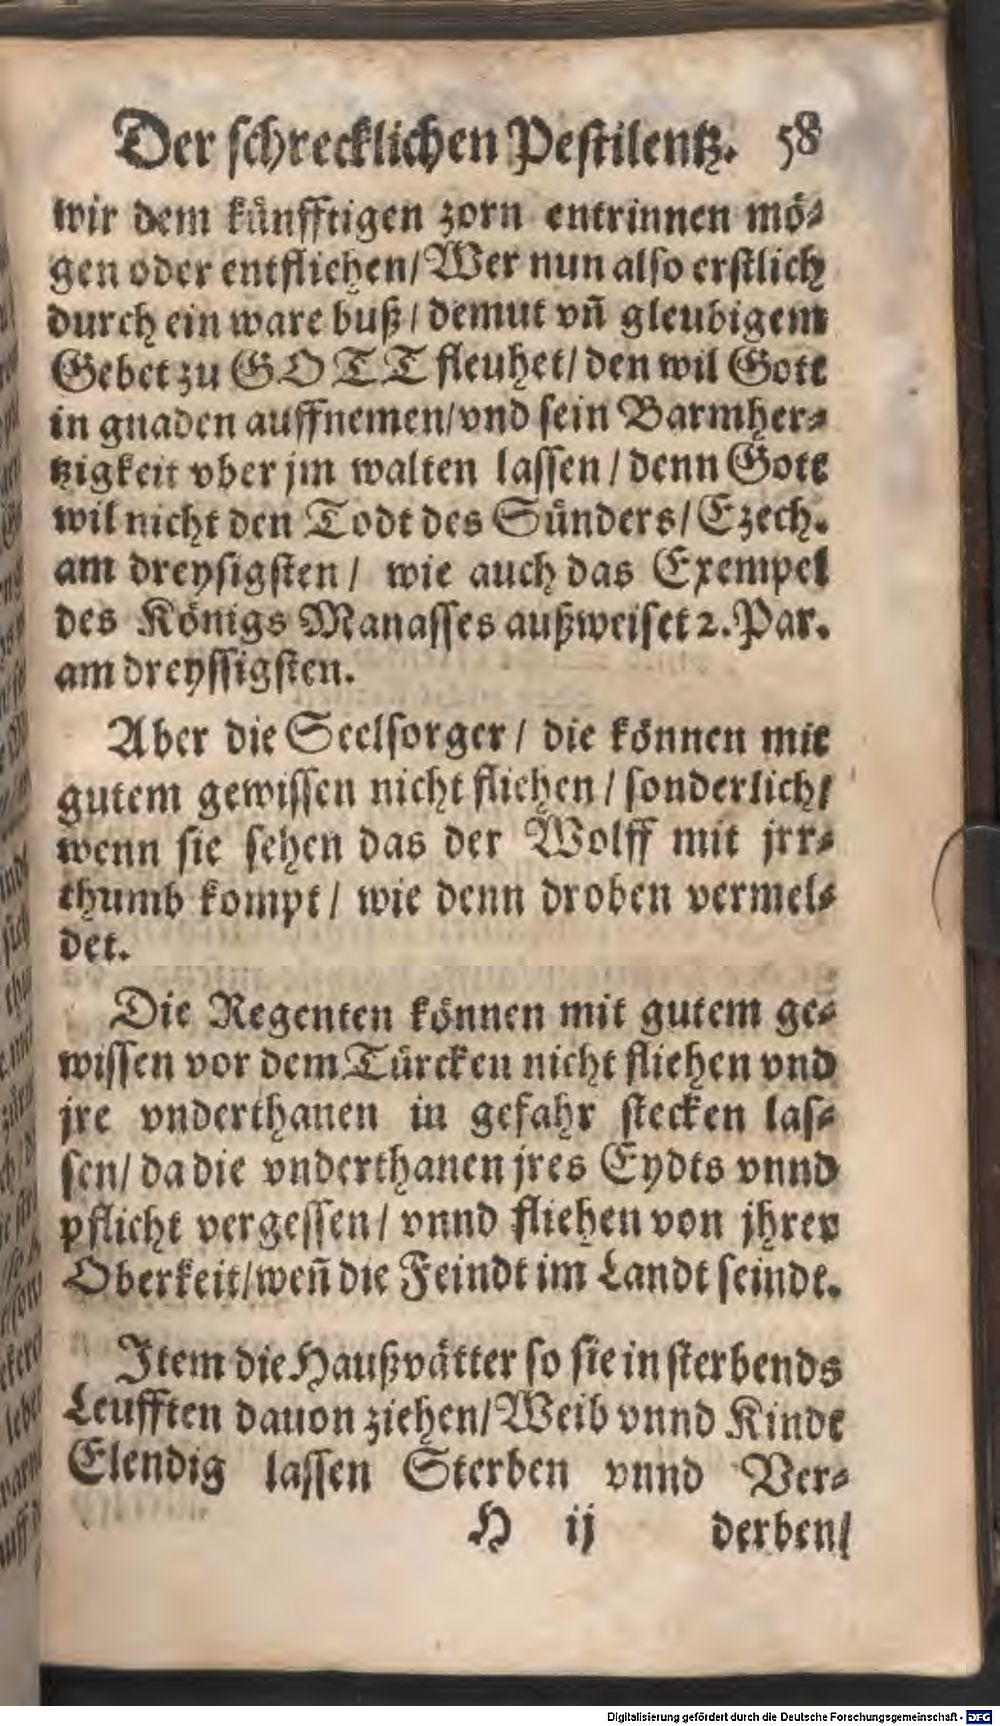 Der schrecklichen Pestilentz. 58
wir dem künfftigen zorn entrinnen mö⸗
gen oder entfliehen/ Wer nun also erstlich
durch ein ware buß / demut vñ gleubigem
Gebet zu GOTT fleuhet/ den wil Gott
in gnaden auffnemen/vnd sein Barmher⸗
tzigkeit vber jm walten lassen / denn Gott
wil nicht den Todt des Sünders/ Ezech.
am dreysigsten / wie auch das Exempel
des Königs Manasses außweiset 2. Par.
am dreyssigsten.
Aber die Seelsorger / die können mit
gutem gewissen nicht fliehen / sonderlich/
wenn sie sehen das der Wolff mit jrr⸗
thumb kompt / wie denn droben vermel⸗
det.
Die Regenten können mit gutem ge⸗
wissen vor dem Türcken nicht fliehen vnd
jre vnderthanen in gefahr stecken las⸗
sen/ da die vnderthanen jres Eydts vnnd
pflicht vergessen / vnnd fliehen von jhrer
Oberkeit/weñ die Feindt im Landt seindt.
Item die Haußvätter so sie in sterbends
Leufften dauon ziehen/ Weib vnnd Kindt
Elendig lassen Sterben vnnd Ver⸗
H ij derben/
Digitalisierung gefördert durch die Deutsche Forschungsgemeinschaft - DFG